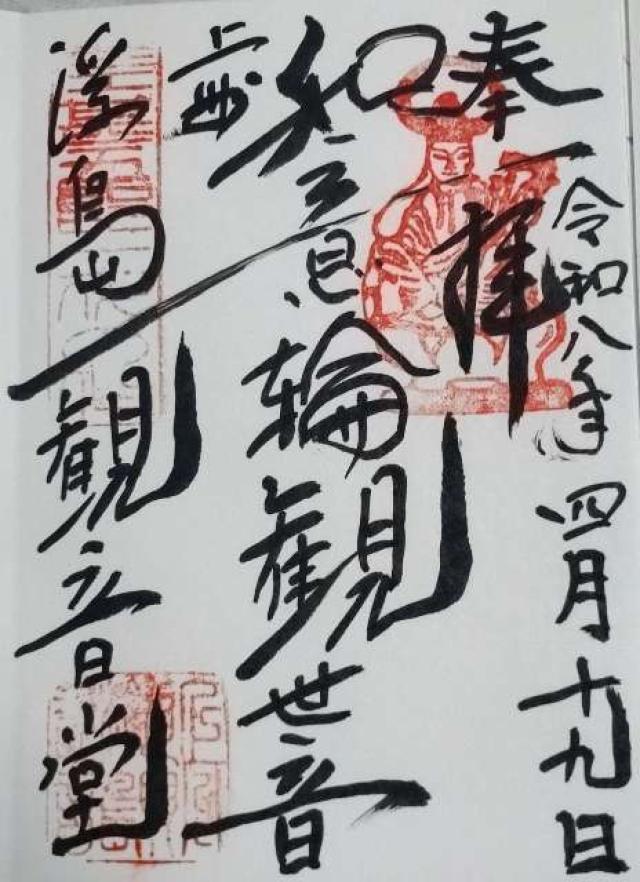 奉拝
令和八年四月十九日
如意輪観世音
上州
浮島観音堂